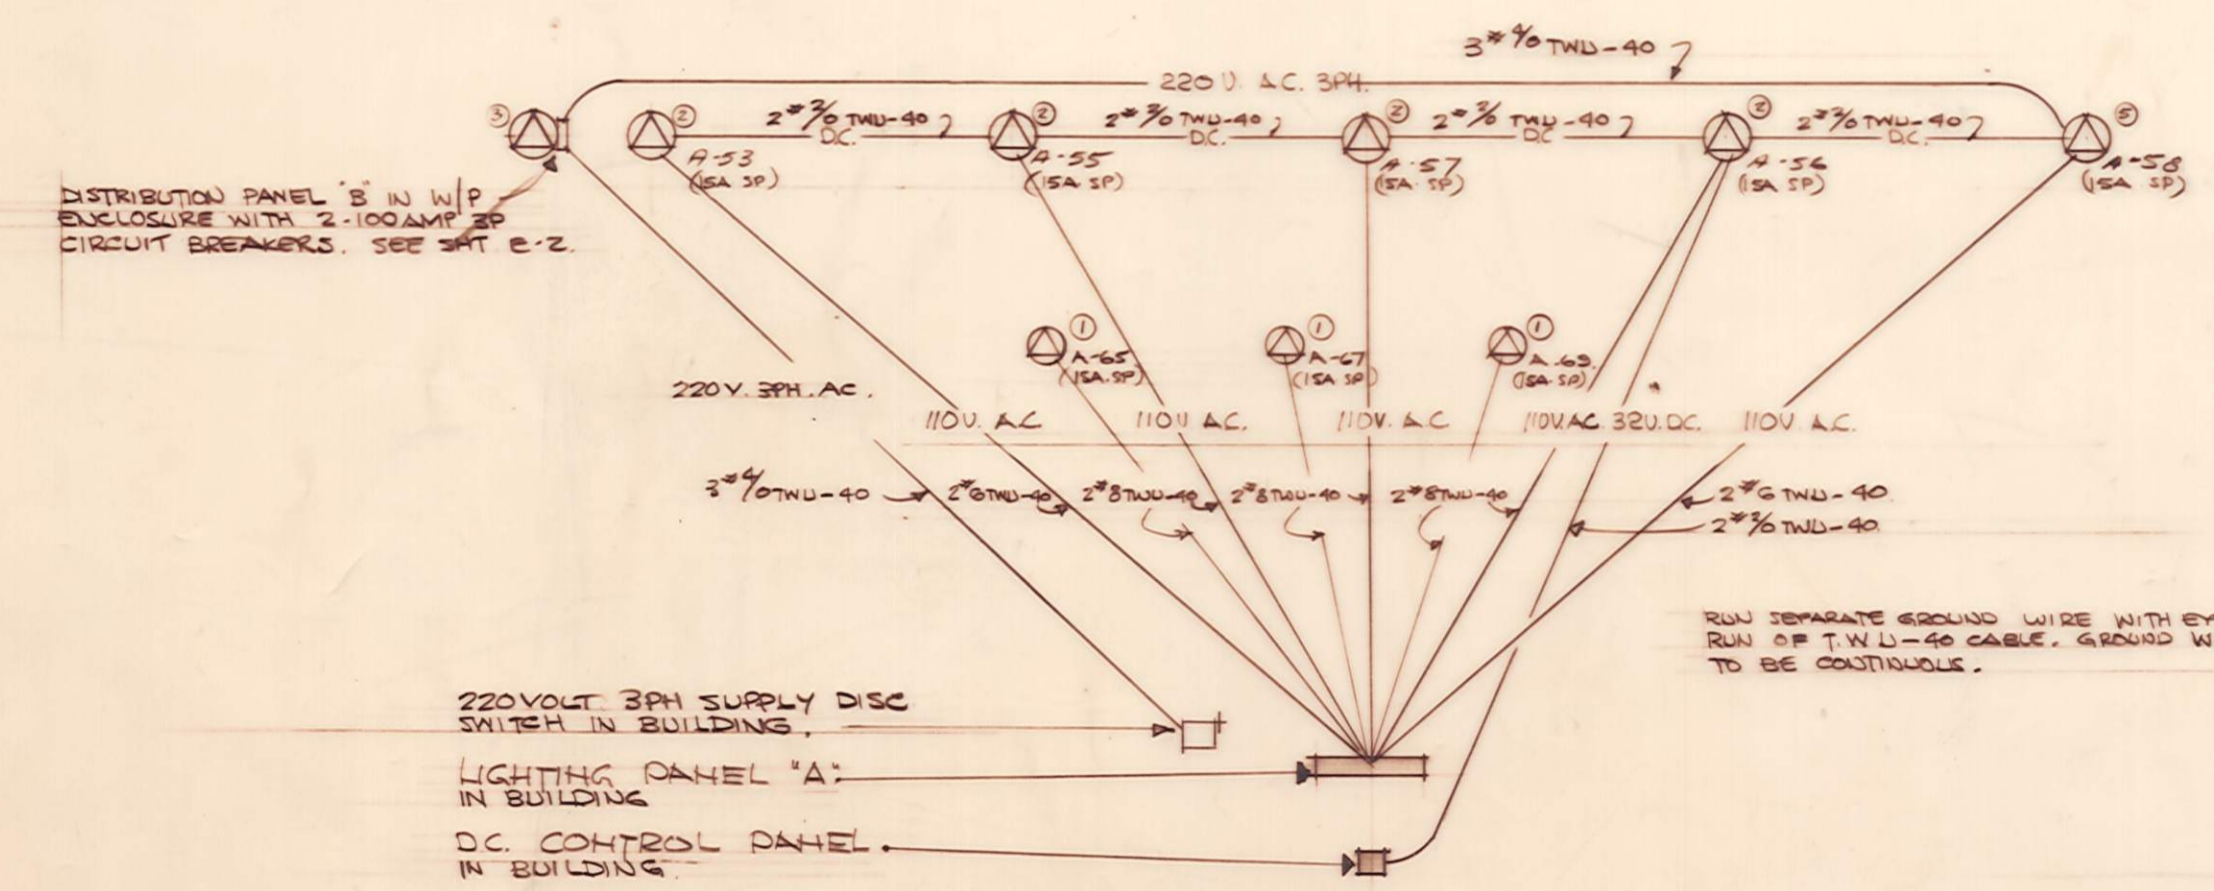 3#4/0 TWU-40
220 V. A.C. 3PH.
3
2
2#2/0 TWU-40
D.C.
2
2#2/0 TWU-40
D.C.
2
2#2/0 TWU-40
D.C
2
2#2/0 TWU-40
D.C.
5
A-53
(15A SP)
A-55
(15A SP)
A-57
(15A SP)
A-56
(15A SP)
A-58
(15A SP)
DISTRIBUTION PANEL "B" IN W/P
ENCLOSURE WITH 2-100AMP 3P
CIRCUIT BREAKERS. SEE SHT E-2.
1
A-65
(15A.SP)
1
A-67
(15A SP)
1
A-69
(15A SP)
220V. 3PH. AC.
110V. A.C
110V A.C.
110V. A.C
110V.AC. 32V.DC.
110V. A.C.
3#4/0 TWU-40
2#6 TWU-40
2#8 TWU-40
2#8 TWU-40
2#8 TWU-40
2#6 TWU-40
2#2/0 TWU-40
RUN SEPARATE GROUND WIRE WITH
RUN OF T.W.U-40 CABLE. GROUND
TO BE CONTINUOUS.
220VOLT 3PH SUPPLY DISC
SWITCH IN BUILDING.
LIGHTING PANEL "A"
IN BUILDING
D.C. CONTROL PANEL
IN BUILDING